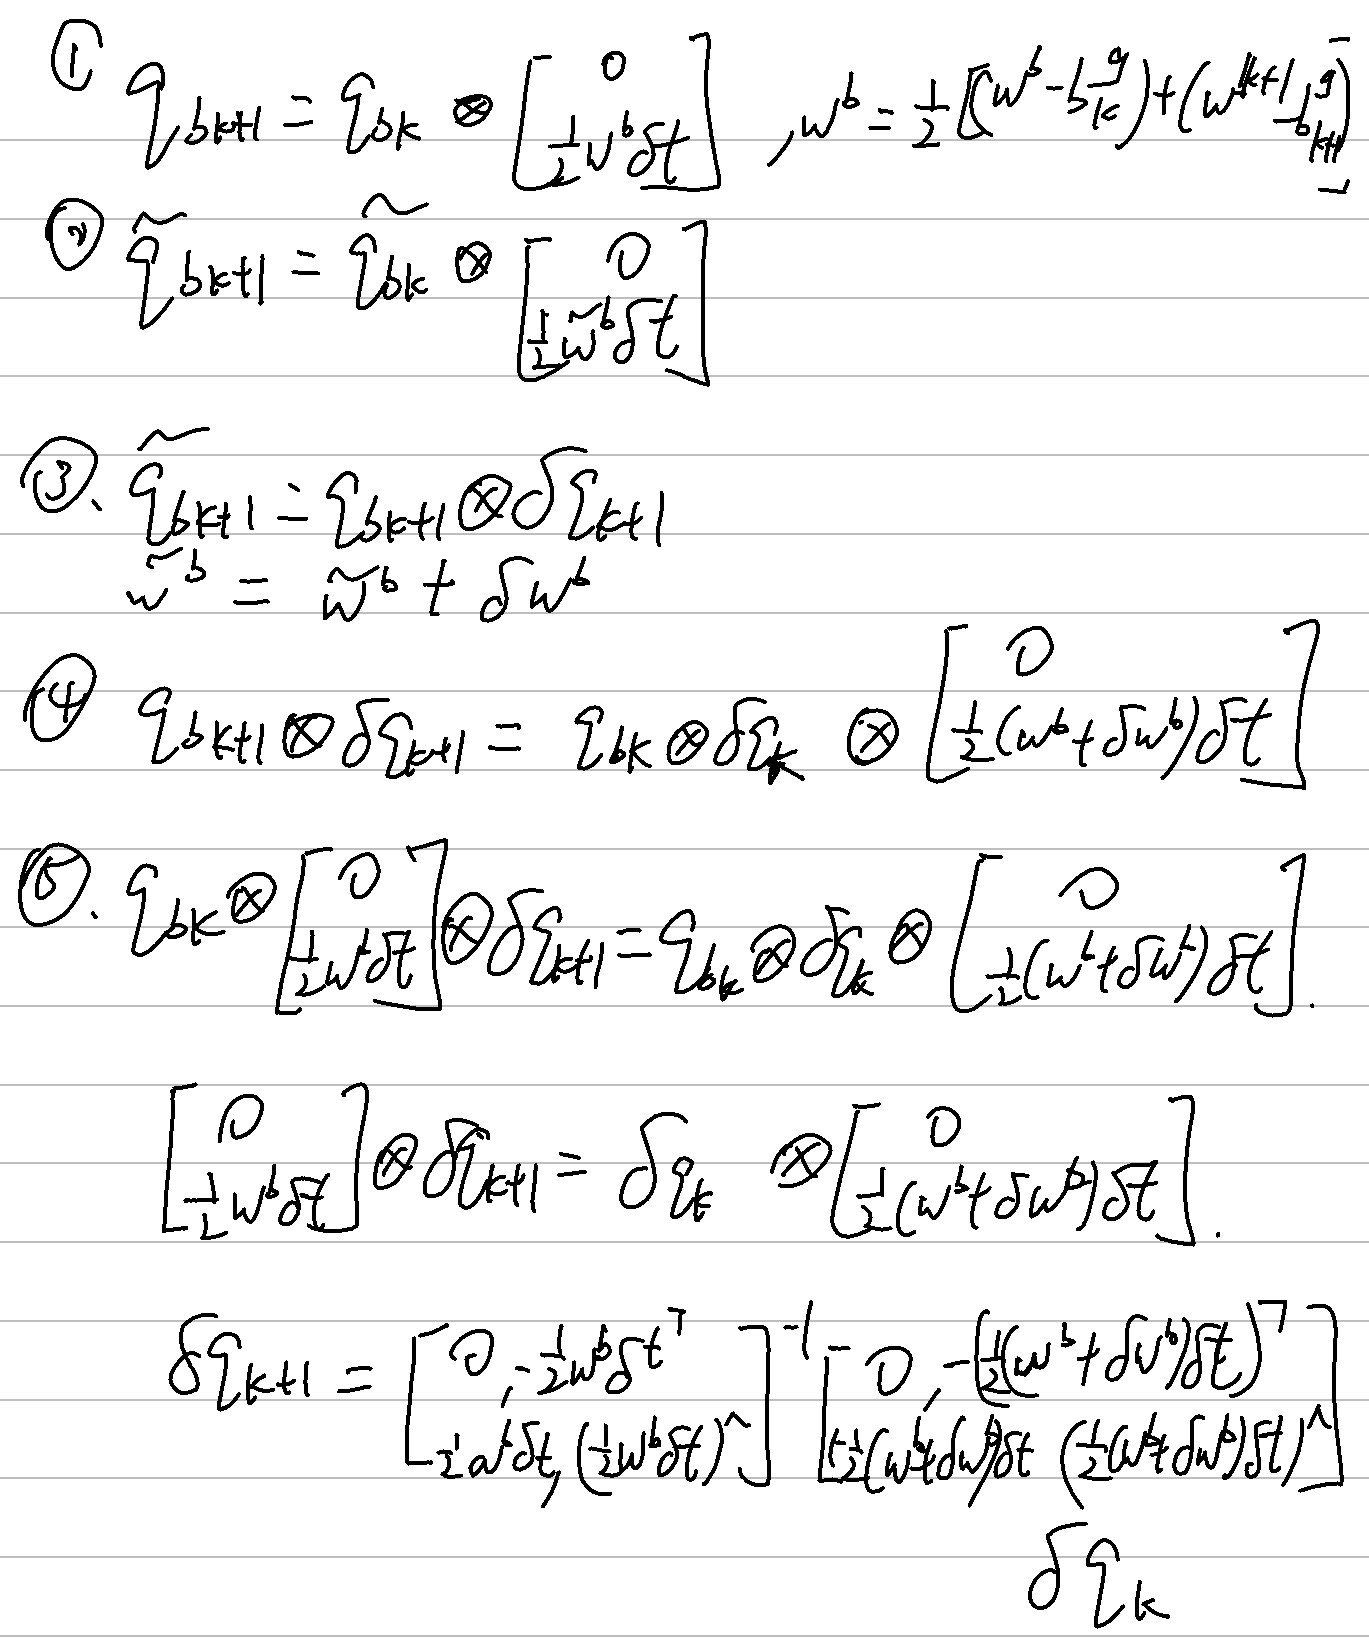 ① q_{bk+1} = q_{bk} ⊗ [0; ½ w^b δt], w^b = ½ [(w^b - b_k^g) + (w^{k+1} - b_{k+1}^g)]
② q̃_{bk+1} = q̃_{bk} ⊗ [0; ½ w̃^b δt]
③. q̃_{bk+1} = q_{bk+1} ⊗ δq_{k+1}
w̃^b = w̃^b + δw^b
④ q_{bk+1} ⊗ δq_{k+1} = q_{bk} ⊗ δq_k ⊗ [0; ½ (w^b + δw^b) δt]
⑤. q_{bk} ⊗ [0; ½ w^b δt] ⊗ δq_{k+1} = q_{bk} ⊗ δq_k ⊗ [0; ½ (w^b + δw^b) δt].
[0; ½ w^b δt] ⊗ δq_{k+1} = δq_k ⊗ [0; ½ (w^b + δw^b) δt].
δq_{k+1} = [0, -½ w^b δt^T; ½ w^b δt, (½ w^b δt)^∧]^{-1} [0, -(½ (w^b + δw^b) δt)^T; ½ (w^b + δw^b) δt (½ (w^b + δw^b) δt)^∧]
δq_k